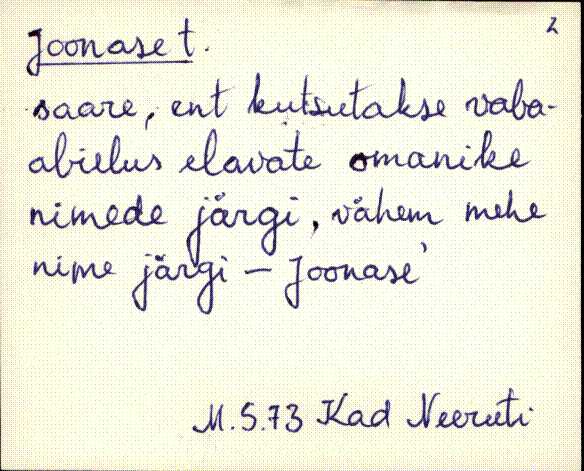 2
Joonase t.
saare, ent kutsutakse vaba-
abielus elavate omanike
nimede järgi, vähem mehe
nime järgi – Joonase'
M. S. 73 Kad Neeruti